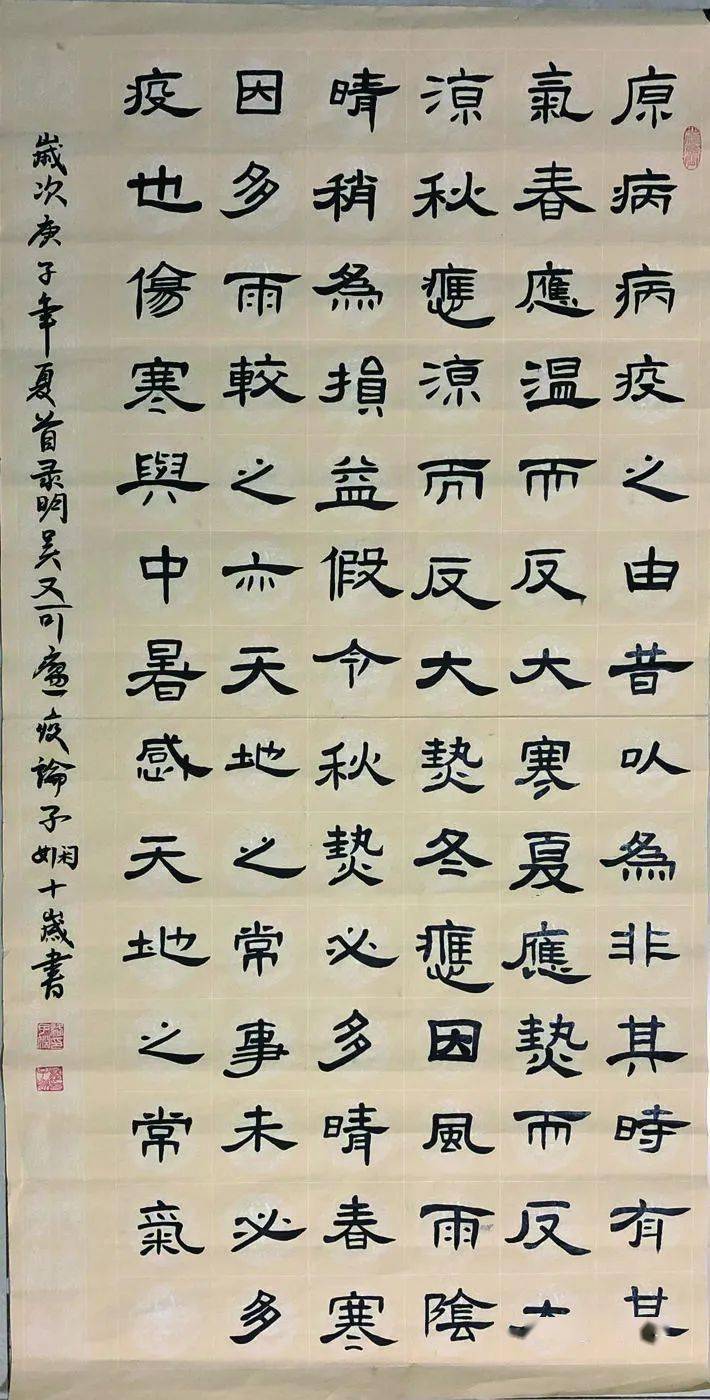 原病病疫之由昔以為非其時有其
氣春應温而反大寒夏應熱而反大
涼秋應涼而反大熱冬應因風雨陰
晴稍為損益假令秋熱必多晴春寒
因多雨較之亦天地之常事未必多
疫也傷寒與中暑感天地之常氣
歲次庚子年夏首录明吴又可瘟疫論子嫻十歲書